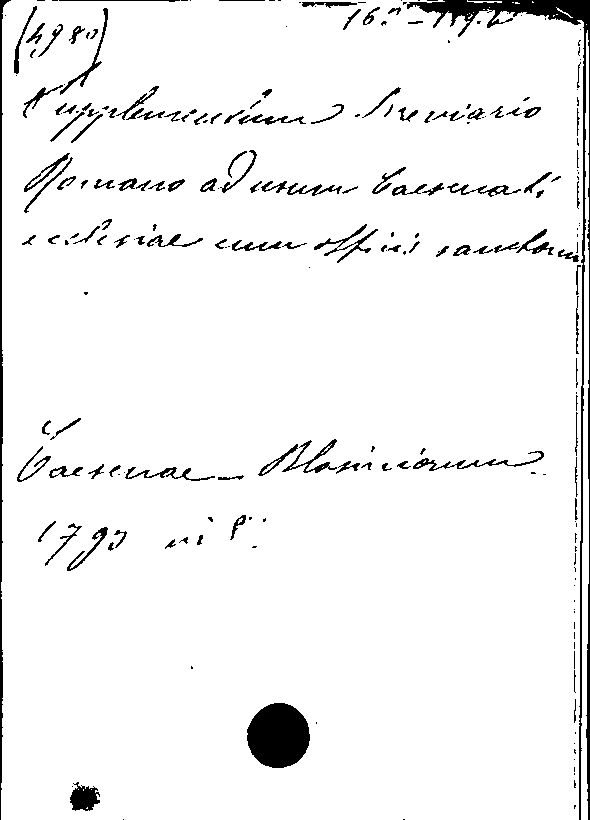 (4980)
Supplementum Breviario
Romano ad usum Caesenatis
ecclesiae cum officii sanctorum
Caesenae - Blasiniorum -
1793 in 8°.